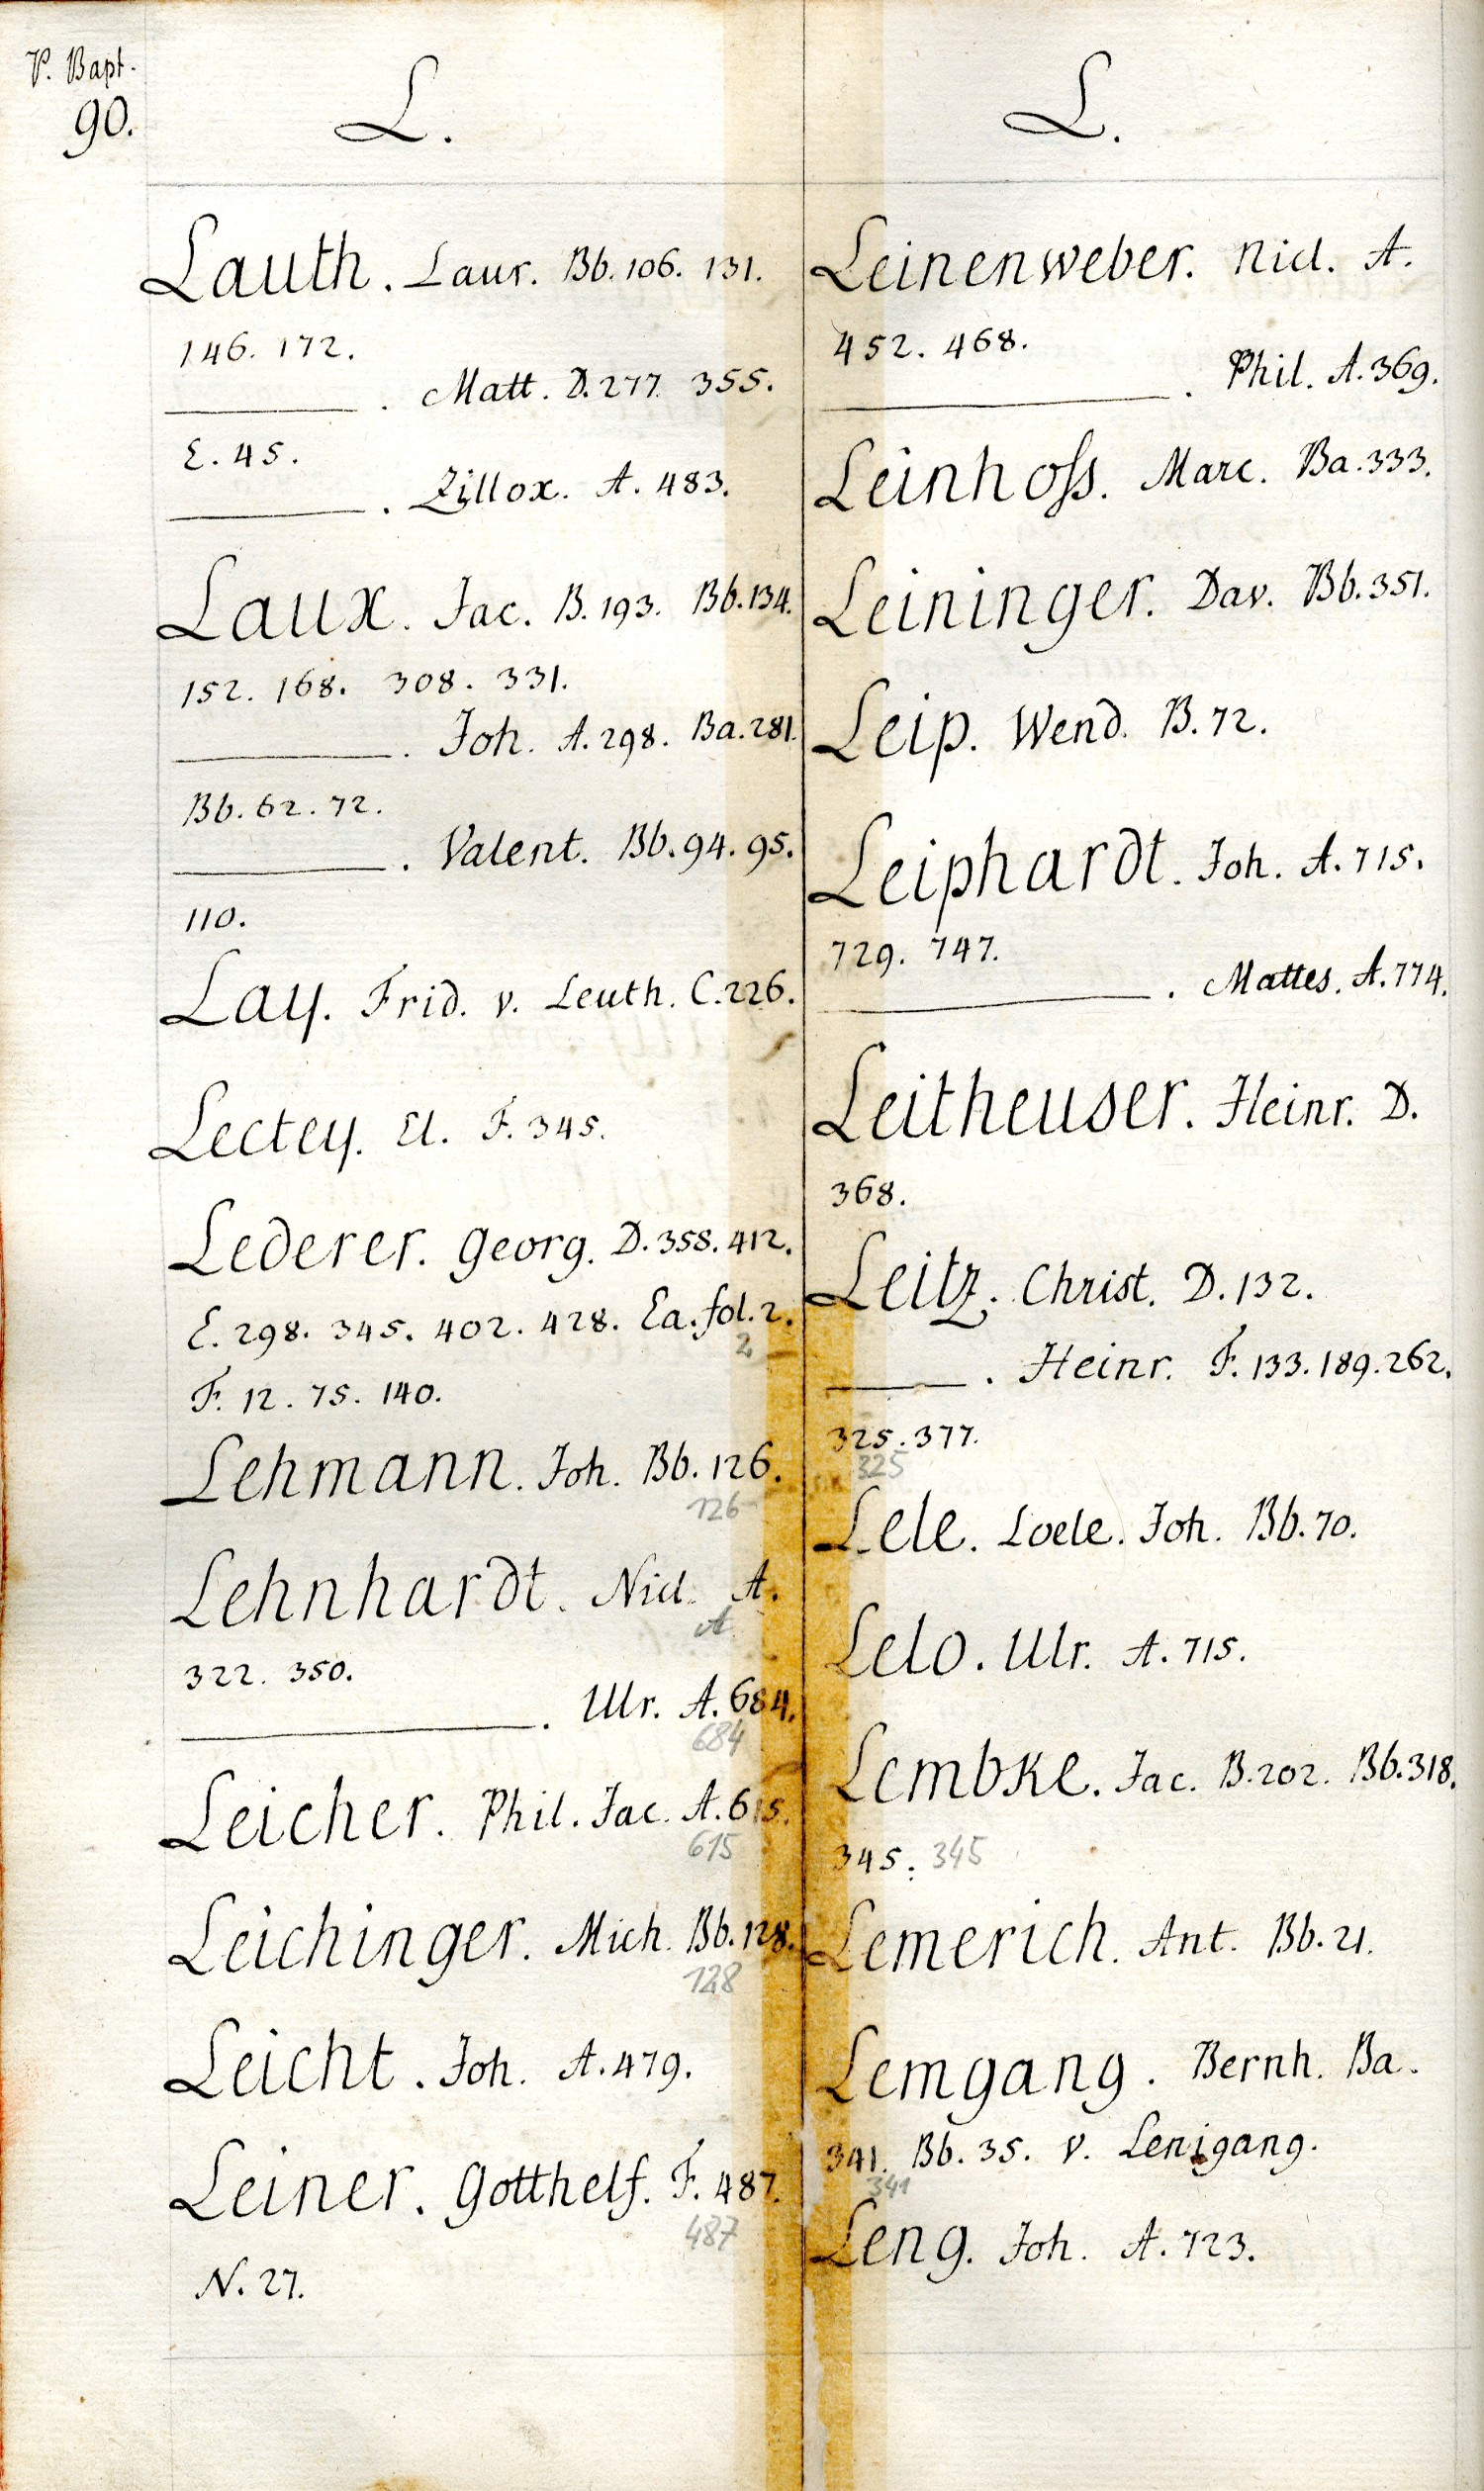 V. Bapt.
90.
L.
Lauth. Laur. Bb. 106. 131.
146. 172.
. Matt. D. 277. 355.
E. 45.
. Zillox. A. 483.
Laux. Jac. B. 193. Bb. 134.
152. 168. 308. 331.
. Joh. A. 298. Ba. 281.
Bb. 62. 72.
. Valent. Bb. 94. 95.
110.
Lay. Frid. v. Leuth. C. 226.
Lectey. El. F. 345.
Lederer. Georg. D. 358. 412.
E. 298. 345. 402. 428. Ea. fol. 2.
2
F. 12. 75. 140.
Lehmann. Joh. Bb. 126.
126
Lehnhardt. Nicl. A.
A
322. 350.
. Ulr. A. 684.
684
Leicher. Phil. Jac. A. 615.
615
Leichinger. Mich. Bb. 128.
128
Leicht. Joh. A. 479.
Leiner. Gotthelf. F. 487.
487
N. 27.
L.
Leinenweber. Nicl. A.
452. 468.
. Phil. A. 369.
Leinhoſs. Marc. Ba. 333.
Leininger. Dav. Bb. 351.
Leip. Wend. B. 72.
Leiphardt. Joh. A. 715.
729. 747.
. Mattes. A. 774.
Leitheuser. Heinr. D.
368.
Leitz. Christ. D. 132.
. Heinr. F. 133. 189. 262.
325. 377.
325
Lele. Loele. Joh. Bb. 70.
Lelo. Ulr. A. 715.
Lembke. Jac. B. 202. Bb. 318.
345. 345
Lemerich. Ant. Bb. 21.
Lemgang. Bernh. Ba.
341. Bb. 35. v. Lenigang.
341
Leng. Joh. A. 723.